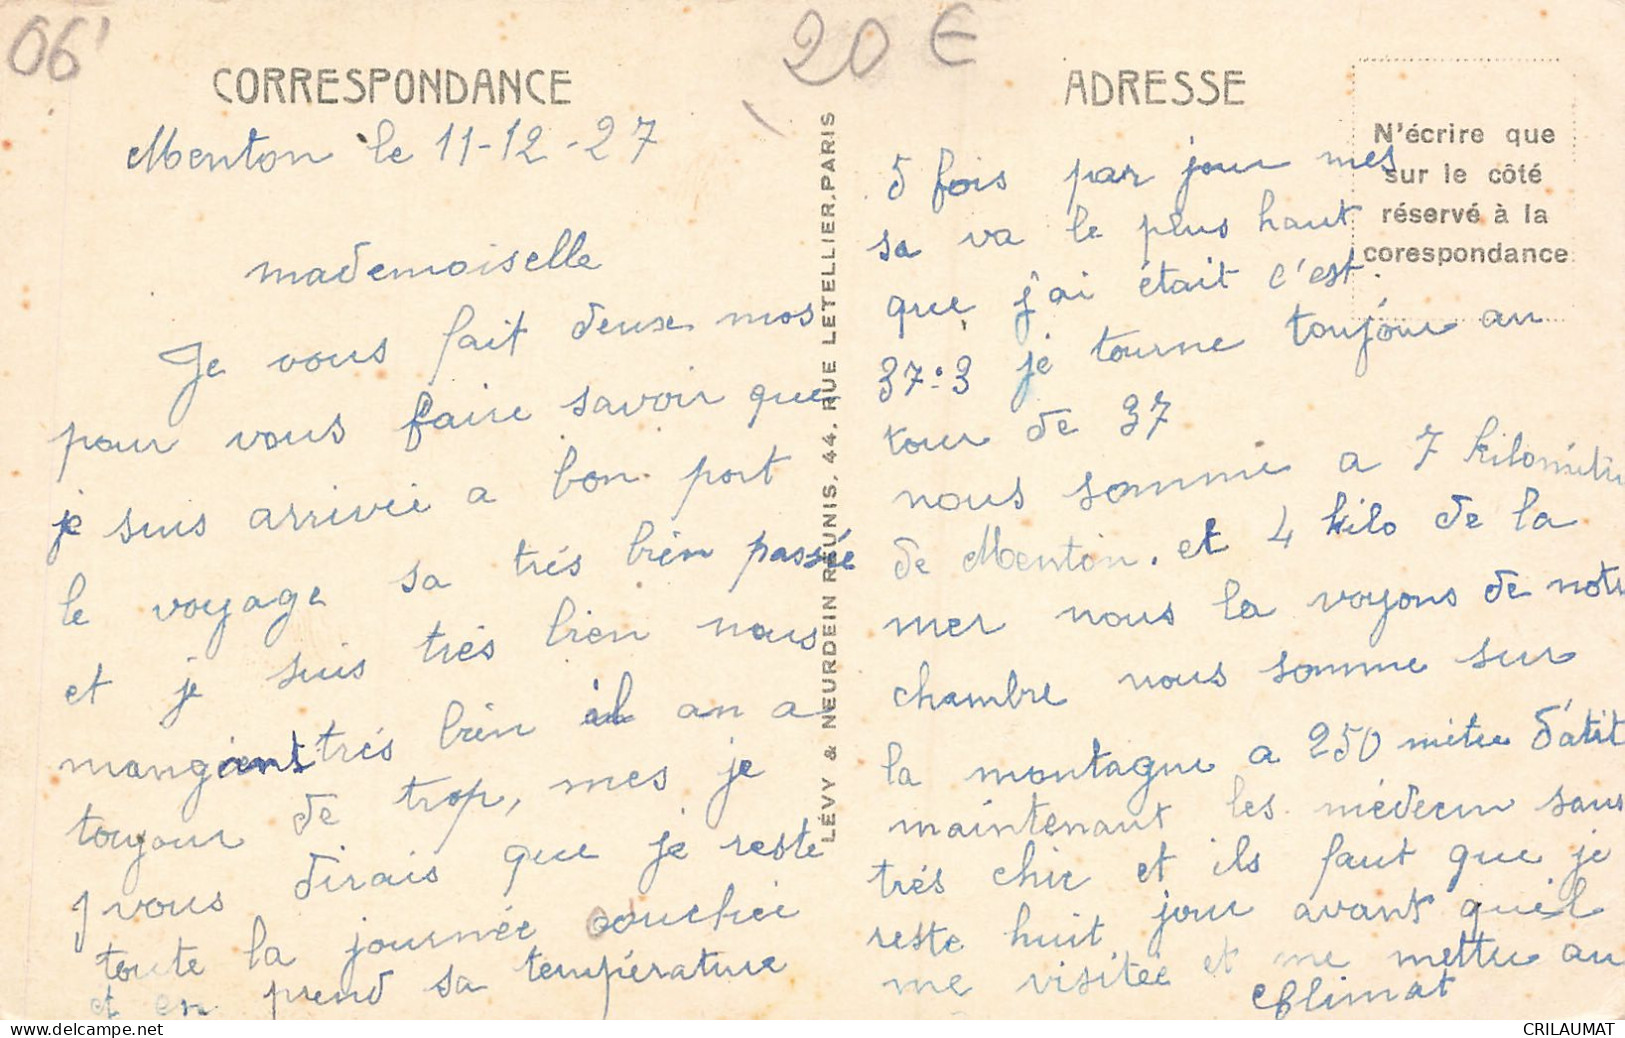 06'
20 €
CORRESPONDANCE
Menton le 11-12-27
mademoiselle
Je vous fait deux mos
pour vous faire savoir que
je suis arrivée a bon port
le voyage sa trés bien passée
et je suis trés bien nous
mangeont trés bien il an a
toujour de trop, mes je
vous dirais que je reste
toute la journée couchée
et en prend sa température
LÉVY & NEURDEIN RÉUNIS, 44, RUE LETELLIER, PARIS
ADRESSE
N'écrire que
sur le côté
réservé à la
corespondance
5 fois par jour mes
sa va le plus haut
que j'ai était c'est
37:3 je tourne toujour au
tour de 37
nous somme a 7 kilomitre
de Menton. et 4 kilo de la
mer nous la voyons de notre
chambre nous somme sur
la montagne a 250 mitre d'átit
maintenant les médecin sans
trés chic et ils faut que je
reste huit jour avant quéil
me visitée et me mettre au
climat
CRILAUMAT